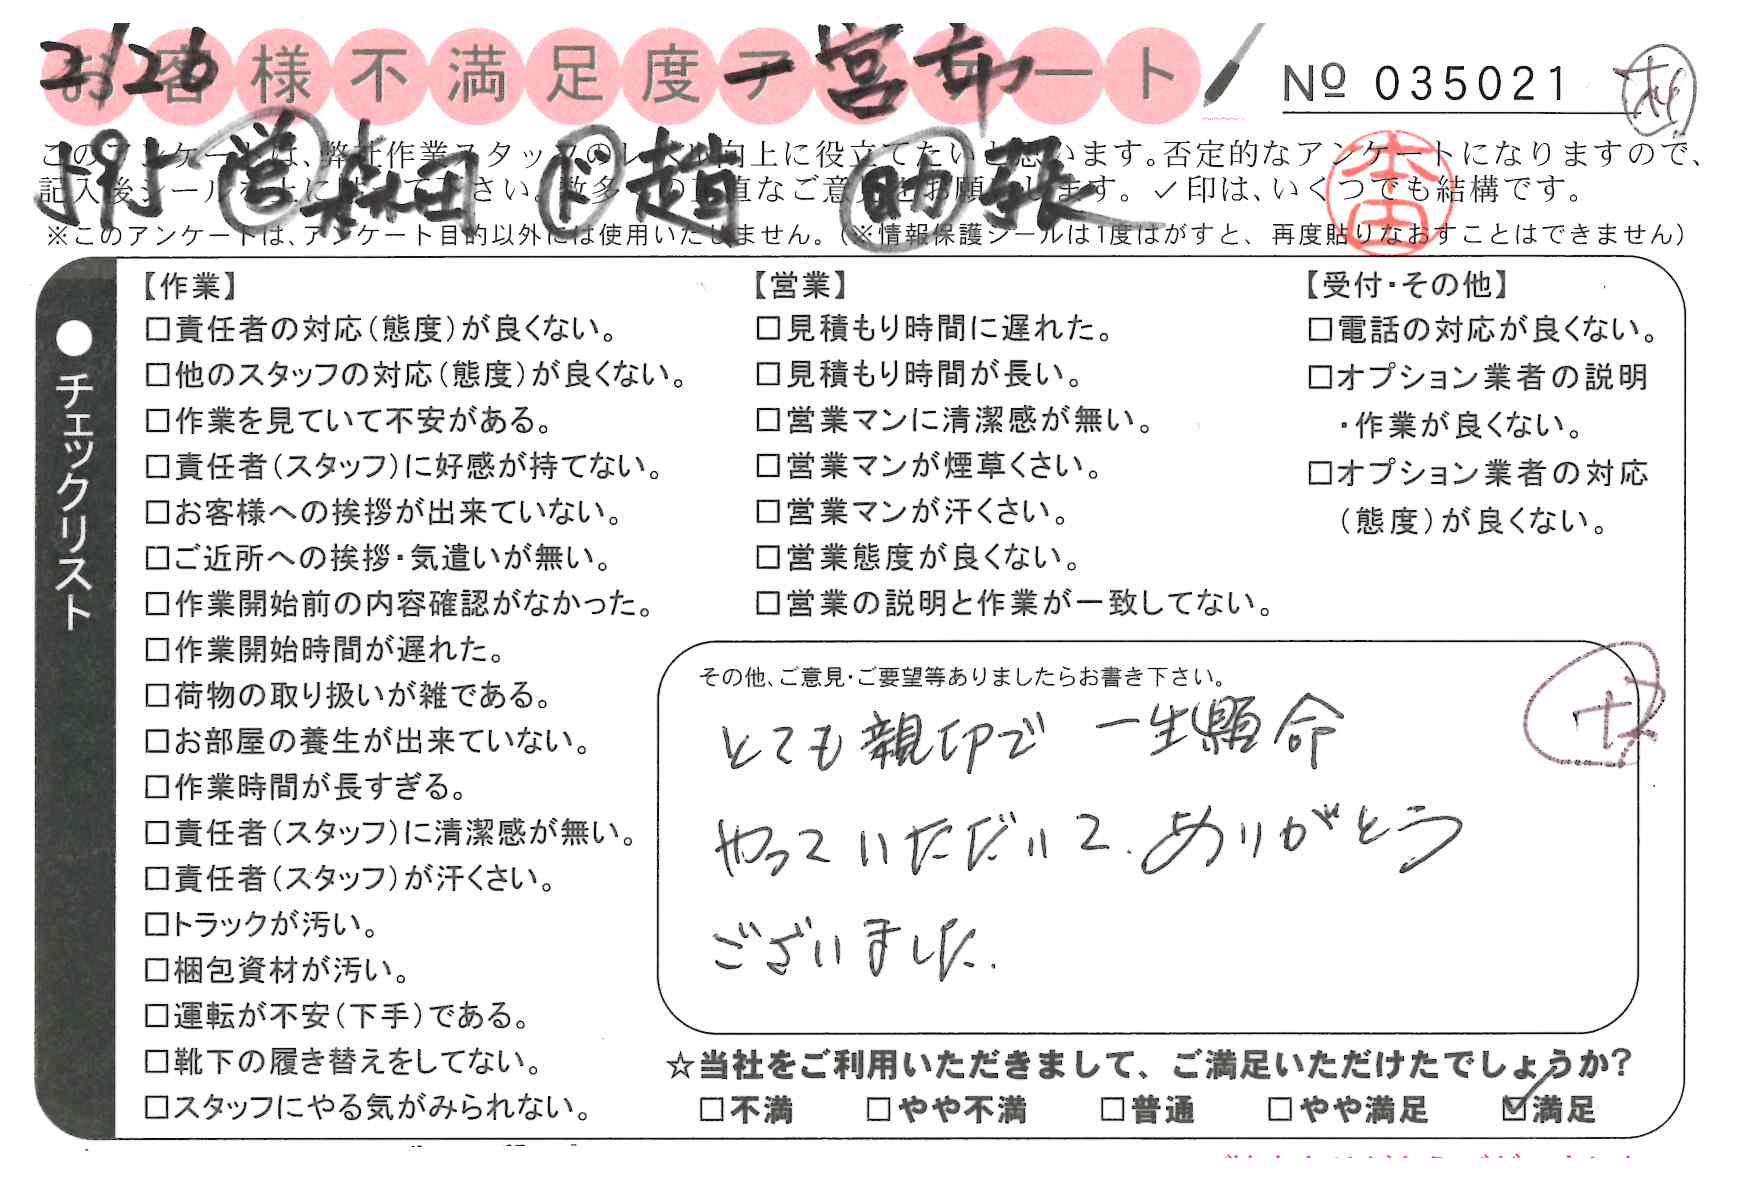 2/26 一宮市
お客様不満足度アンケート
№ 035021
引 営 森田 ド 趙 助 張
このアンケートは、弊社作業スタッフのレベル向上に役立てたいと思います。否定的なアンケートになりますので、
記入後シールを上に貼って下さい。数多くの正直なご意見をお願いします。✓印は、いくつでも結構です。
※このアンケートは、アンケート目的以外には使用いたしません。(※情報保護シールは1度はがすと、再度貼りなおすことはできません)
本田
●チェックリスト
【作業】
□責任者の対応(態度)が良くない。
□他のスタッフの対応(態度)が良くない。
□作業を見ていて不安がある。
□責任者(スタッフ)に好感が持てない。
□お客様への挨拶が出来ていない。
□ご近所への挨拶・気遣いが無い。
□作業開始前の内容確認がなかった。
□作業開始時間が遅れた。
□荷物の取り扱いが雑である。
□お部屋の養生が出来ていない。
□作業時間が長すぎる。
□責任者(スタッフ)に清潔感が無い。
□責任者(スタッフ)が汗くさい。
□トラックが汚い。
□梱包資材が汚い。
□運転が不安(下手)である。
□靴下の履き替えをしてない。
□スタッフにやる気がみられない。
【営業】
□見積もり時間に遅れた。
□見積もり時間が長い。
□営業マンに清潔感が無い。
□営業マンが煙草くさい。
□営業マンが汗くさい。
□営業態度が良くない。
□営業の説明と作業が一致してない。
【受付・その他】
□電話の対応が良くない。
□オプション業者の説明
・作業が良くない。
□オプション業者の対応
(態度)が良くない。
その他、ご意見・ご要望等ありましたらお書き下さい。
とても親切で 一生懸命
やっていただいて、ありがとう
ございました.
☆当社をご利用いただきまして、ご満足いただけたでしょうか?
□不満 □やや不満 □普通 □やや満足 ☑満足